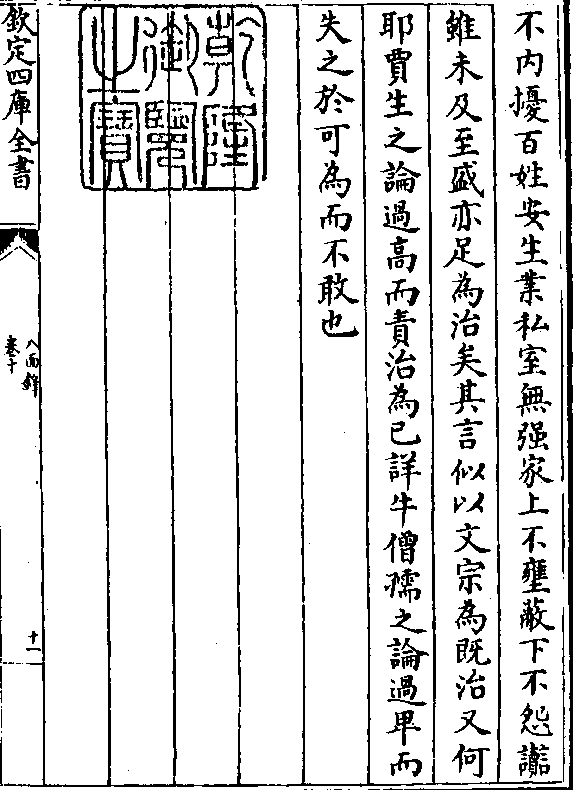 不内擾百姓安生業私室無强家上不壅蔽下不怨讟
雖未及至盛亦足為治矣其言似以文宗為既治又何
耶賈生之論過高而責治為已詳牛僧孺之論過卑而
失之於可為而不敢也
乾隆
御覽
之寶
欽定四庫全書
八面鋒
卷十
十一